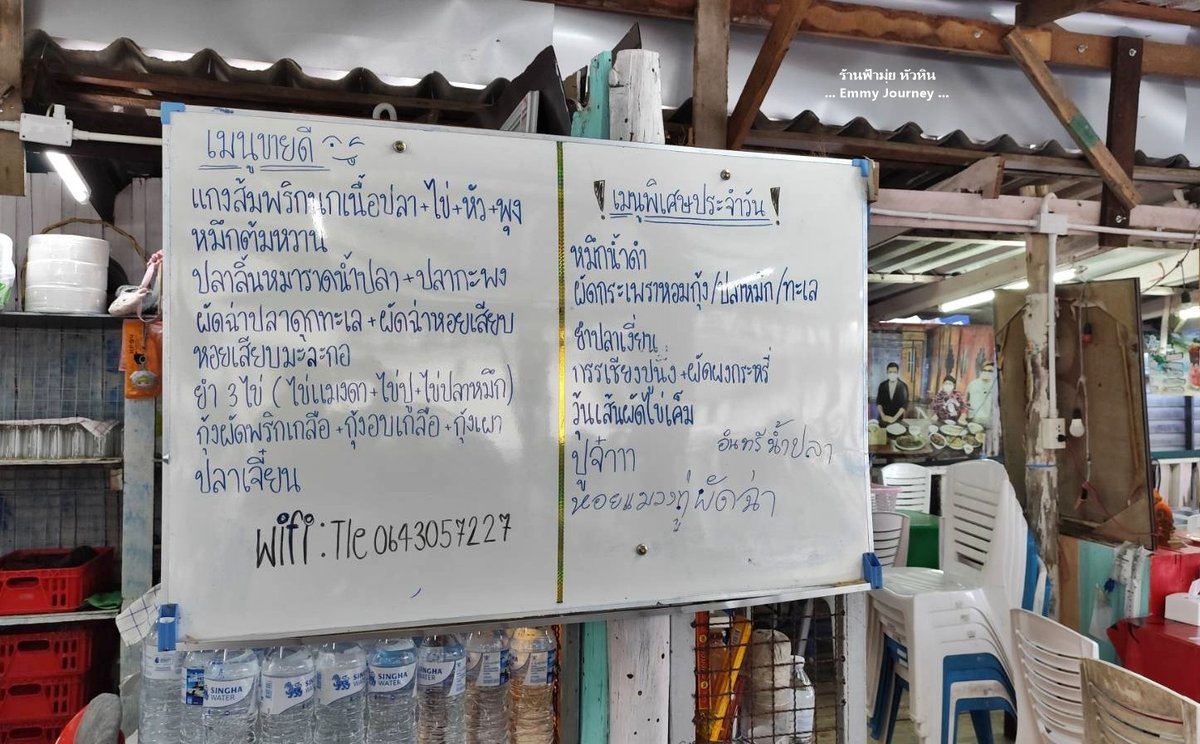 ร้านฟ้ามุ่ย หัวหิน
... Emmy Journey ...
เมนูขายดี
แกงส้มพริกนกเนื้อปลา+ไข่+หัว+พุง
หมึกต้มหวาน
ปลาลิ้นหมาราดน้ำปลา+ปลากะพง
ผัดฉ่าปลาดุกทะเล+ผัดฉ่าหอยเสียบ
หอยเสียบมะละกอ
ยำ 3 ไข่ (ไข่แมงดา+ไข่ปู+ไข่ปลาหมึก)
กุ้งผัดพริกเกลือ+กุ้งอบเกลือ+กุ้งเผา
ปลาเจี๋ยน
wifi : Tle 0643057227
! เมนูพิเศษประจำวัน !
หมึกน้ำดำ
ผัดกระเพราหอมกุ้ง/ปลาหมึก/ทะเล
ยำปลาเงี่ยน
กรรเชียงปูนึ่ง+ผัดผงกระหรี่
วุ้นเส้นผัดไข่เค็ม
ปูจ๋าาา
อินทรีน้ำปลา
หอยแมงภู่ผัดฉ่า
SINGHA WATER
SINGHA WATER
SINGHA WATER
SINGHA WATER
SINGHA WATER